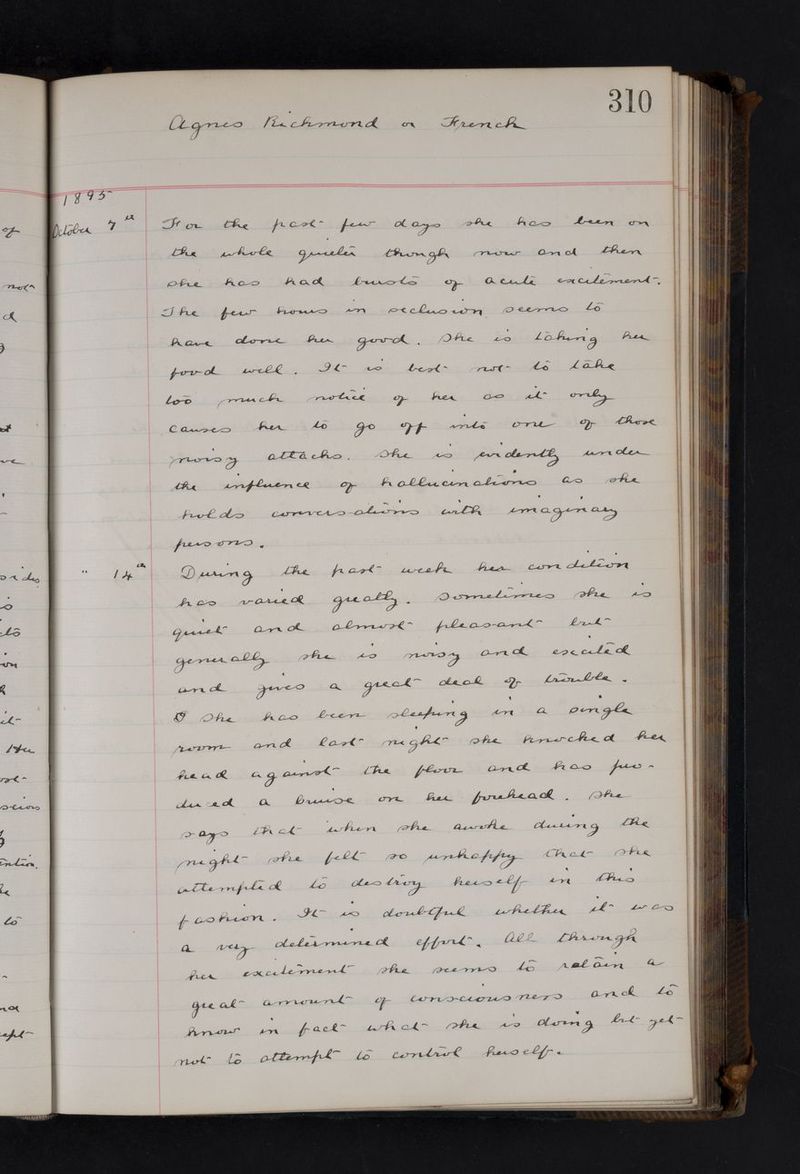 310
Agnes Richmond or French
1895
October 7th For the past few days she has been on
the whole quieter though now and then
she has had bursts of acute excitement.
The few hours in seclusion seems to
have done her good. She is taking her
food well. It is best not to take
too much notice of her as it only
causes her to go off into one of those
noisy attacks. She is evidently under
the influence of hallucinations as she
holds conversations with imaginary
persons.
" 14th During the past week her condition
has varied greatly. Sometimes she is
quiet and almost pleasant but
generally she is noisy and excited
and gives a great deal of trouble.
She has been sleeping in a single
room and last night she knocked her
head against the floor and has pro-
duced a bruise on her forehead. She
says that when she awoke during the
night she felt so unhappy that she
attempted to destroy herself in this
fashion. It is doubtful whether it was
a very determined effort. All through
her excitement she seems to retain a
great amount of consciousness and to
know in fact what she is doing but yet
not to attempt to control herself.